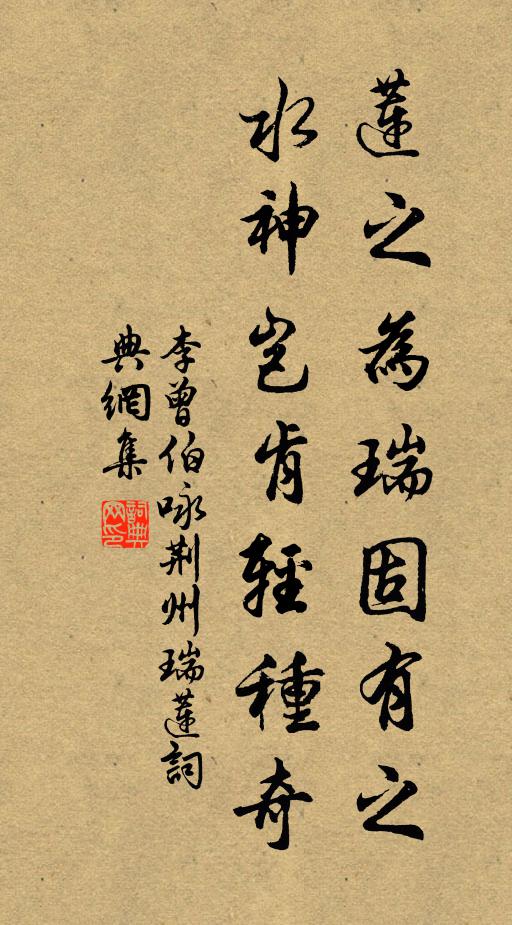 蓮之為瑞固有之
水神豈肯輕種奇
李曾伯咏荆州瑞蓮詞
典網集
詞典網印